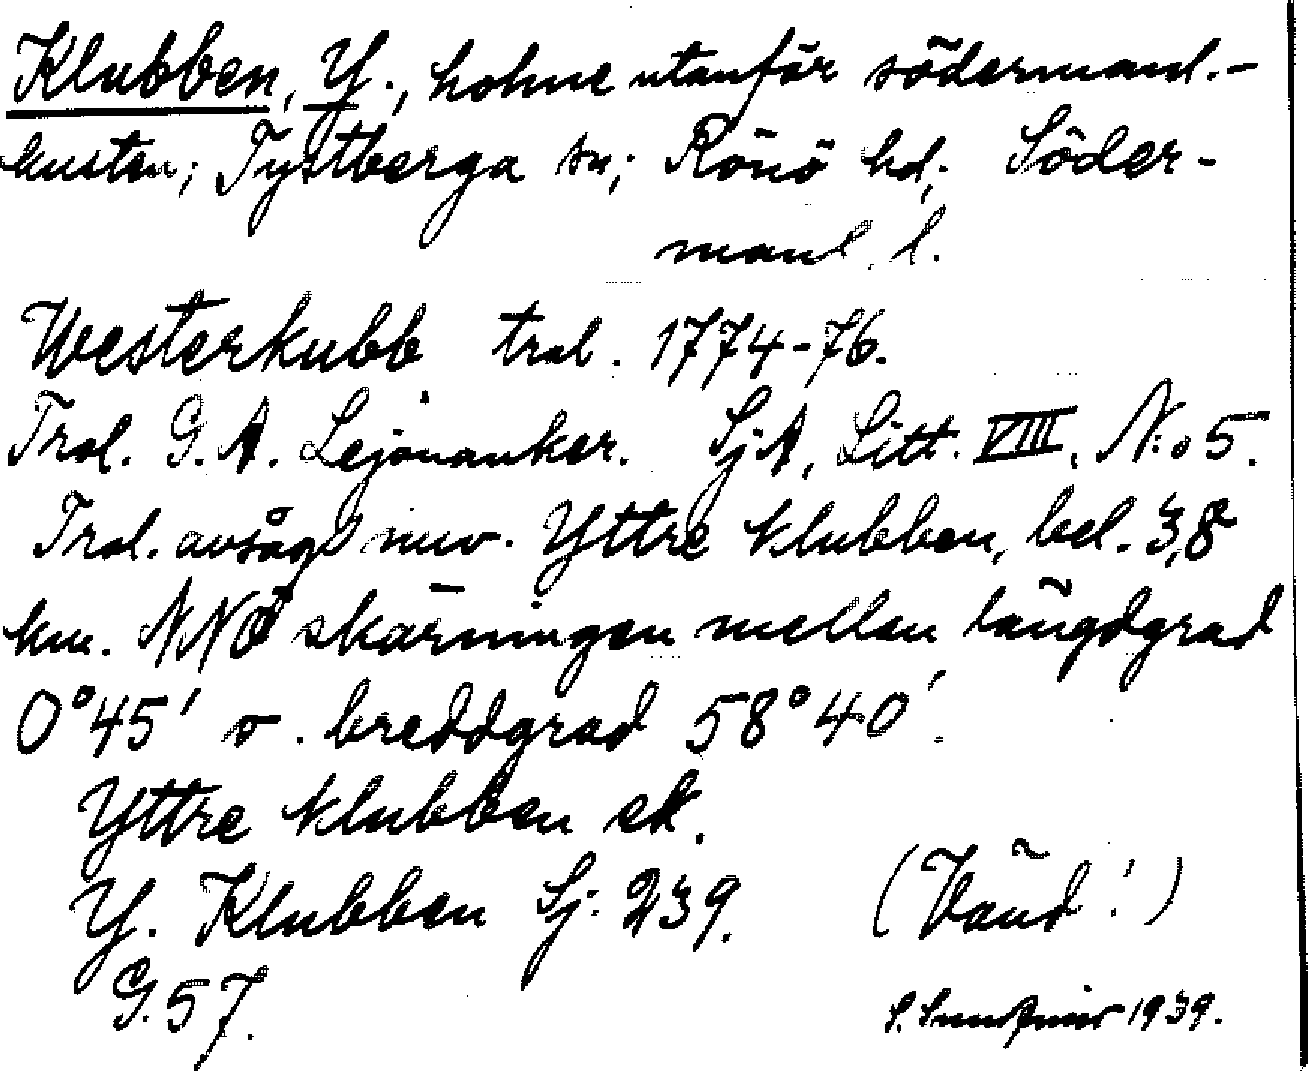 Klubben, Y., holme utanför södermanl.-
kusten; Tystberga sn; Rönö hd; Söder-
manl. l.
Westerkubb trol. 1774-76.
Trol. G. A. Lejonanker. SjA, Litt. VIII, N:o 5.
Trol. avsågs nuv. Yttre klubben, bel. 3,8
km. NNO skärningen mellan längdgrad
0°45' o. breddgrad 58°40'.
Yttre klubben ek.
Y. Klubben Sj. 239. (Vänd!)
G. 57.
1939.